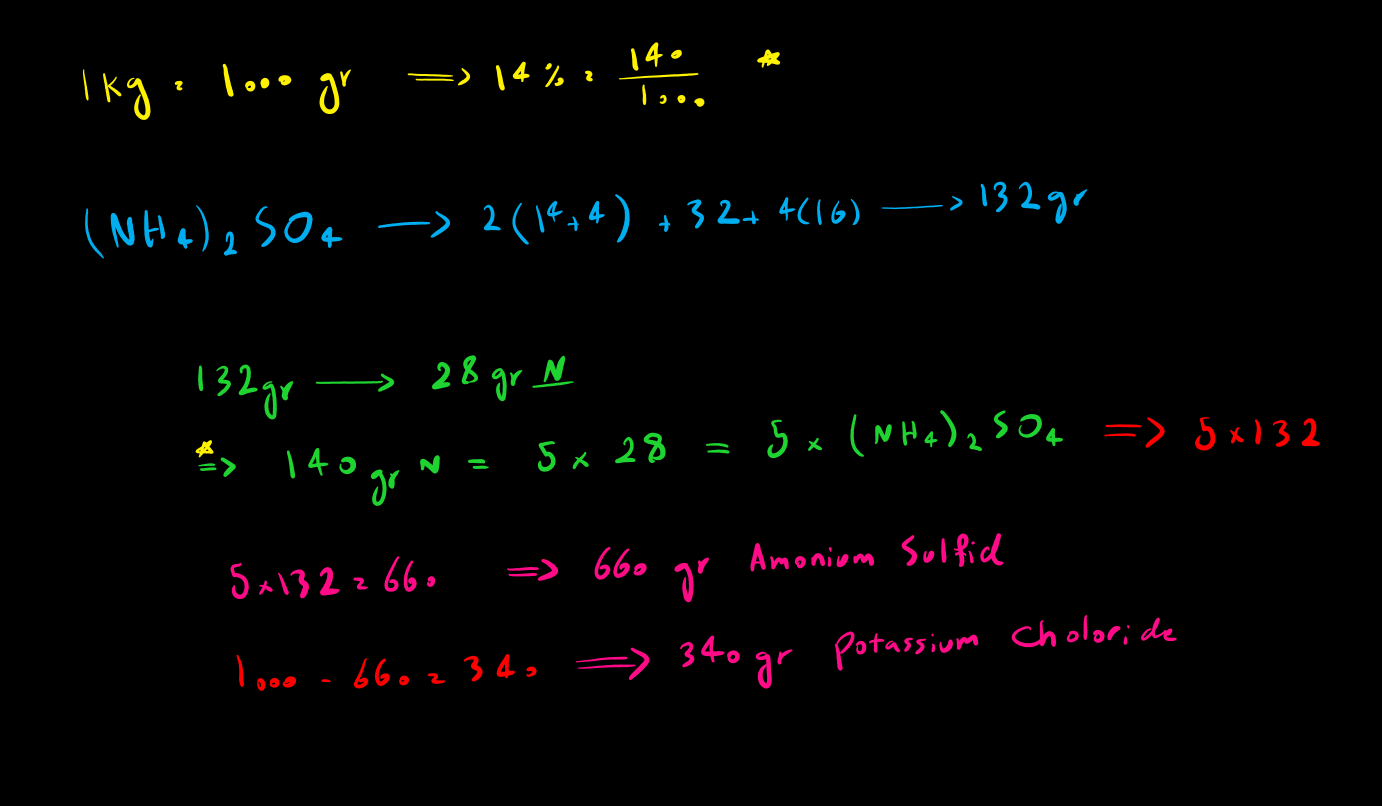 1kg = 1000 gr ⟹ 14% = 140/1000 *
(NH4)2 SO4 ⟶ 2(14+4) + 32 + 4(16) ⟶ 132gr
132gr ⟶ 28 gr N
* => 140 gr N = 5 × 28 = 5 × (NH4)2 SO4 => 5×132
5×132 = 660 => 660 gr Amonium Sulfid
1000 - 660 = 340 ⟹ 340 gr Potassium Choloride